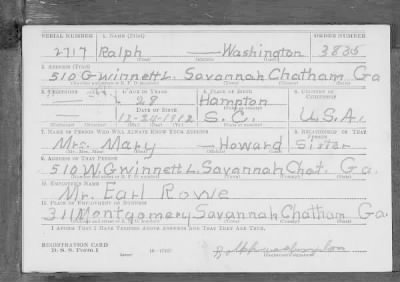 SERIAL NUMBER 1. NAME (Print) ORDER NUMBER
2717 Ralph — Washington 3835
(First) (Middle) (Last)
2. ADDRESS (Print)
510 Gwinnett L. Savannah Chatham Ga
3. TELEPHONE 4. AGE IN YEARS 5. PLACE OF BIRTH 6. COUNTRY OF CITIZENSHIP
28 Hampton
DATE OF BIRTH
12-24-1912 S.C. U.S.A.
7. NAME OF PERSON WHO WILL ALWAYS KNOW YOUR ADDRESS 8. RELATIONSHIP OF THAT PERSON
Mrs. Mary — Howard Sister
9. ADDRESS OF THAT PERSON
510 W. Gwinnett L. Savannah Chat. Ga.
10. EMPLOYER'S NAME
Mr. Earl Rowe
11. PLACE OF EMPLOYMENT OR BUSINESS
311 Montgomery Savannah Chatham Ga
I AFFIRM THAT I HAVE VERIFIED ABOVE ANSWERS AND THAT THEY ARE TRUE.
REGISTRATION CARD
D. S. S. Form 1
Ralph washington